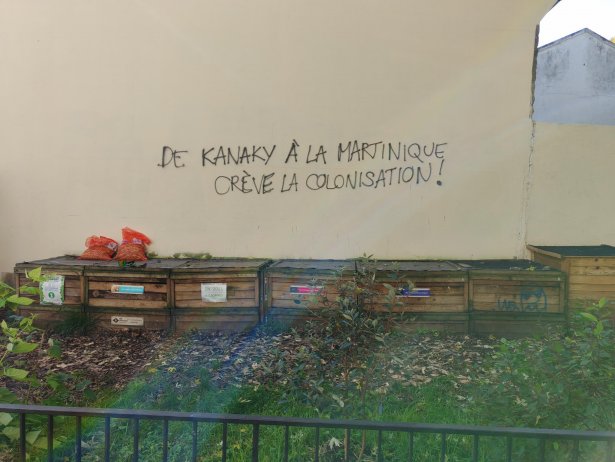 DE KANAKY À LA MARTINIQUE
CRÈVE LA COLONISATION !